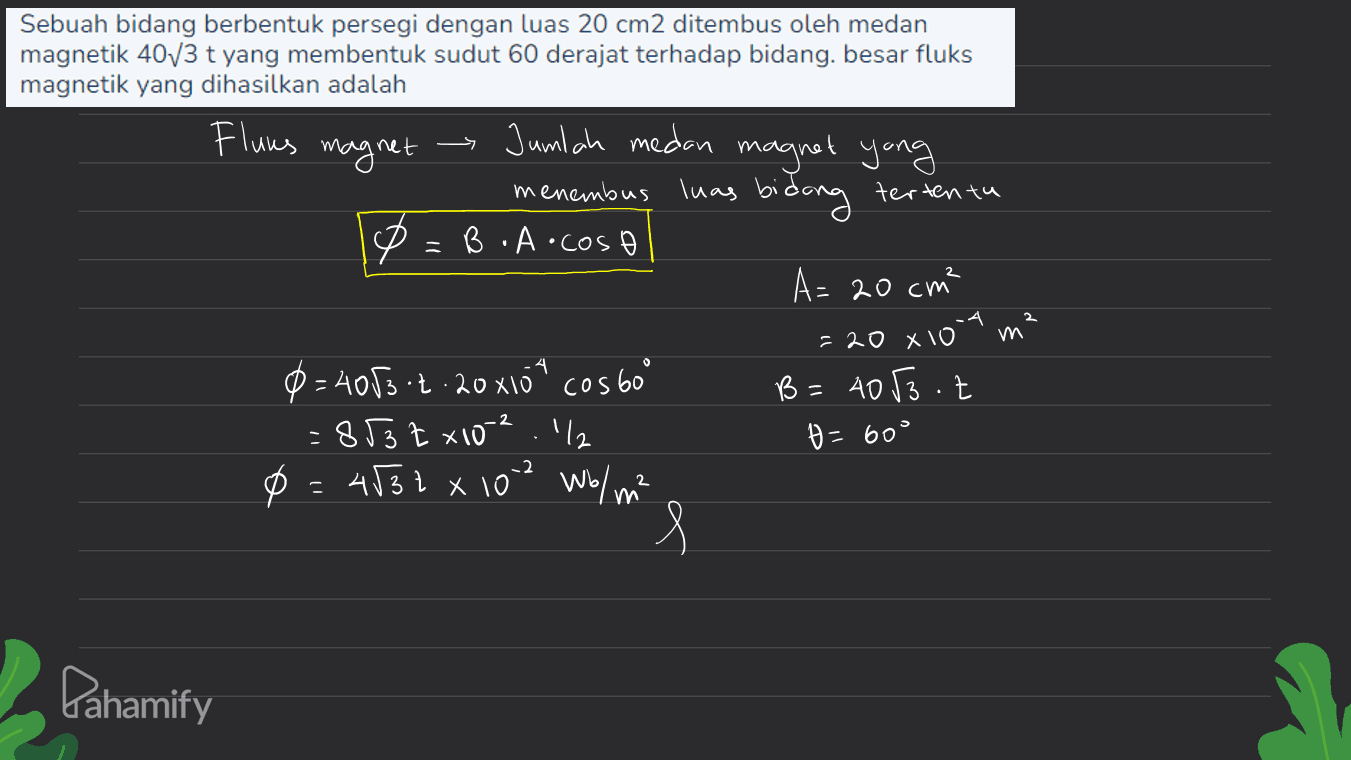 Sebuah bidang berbentuk persegi dengan luas 20 cm2 ditembus oleh medan
magnetik 40√3 t yang membentuk sudut 60 derajat terhadap bidang. besar fluks
magnetik yang dihasilkan adalah
Fluks magnet → Jumlah medan magnet yang
menembus luas bidang tertentu
Ø = B · A · cos θ
A = 20 cm²
= 20 x 10⁻⁴ m²
B = 40√3 . t
θ = 60°
Ø = 40√3 · t · 20 x 10⁻⁴ cos 60°
= 8√3 t x 10⁻² . 1/2
Ø = 4√3 t x 10⁻² Wb/m²
Pahamify